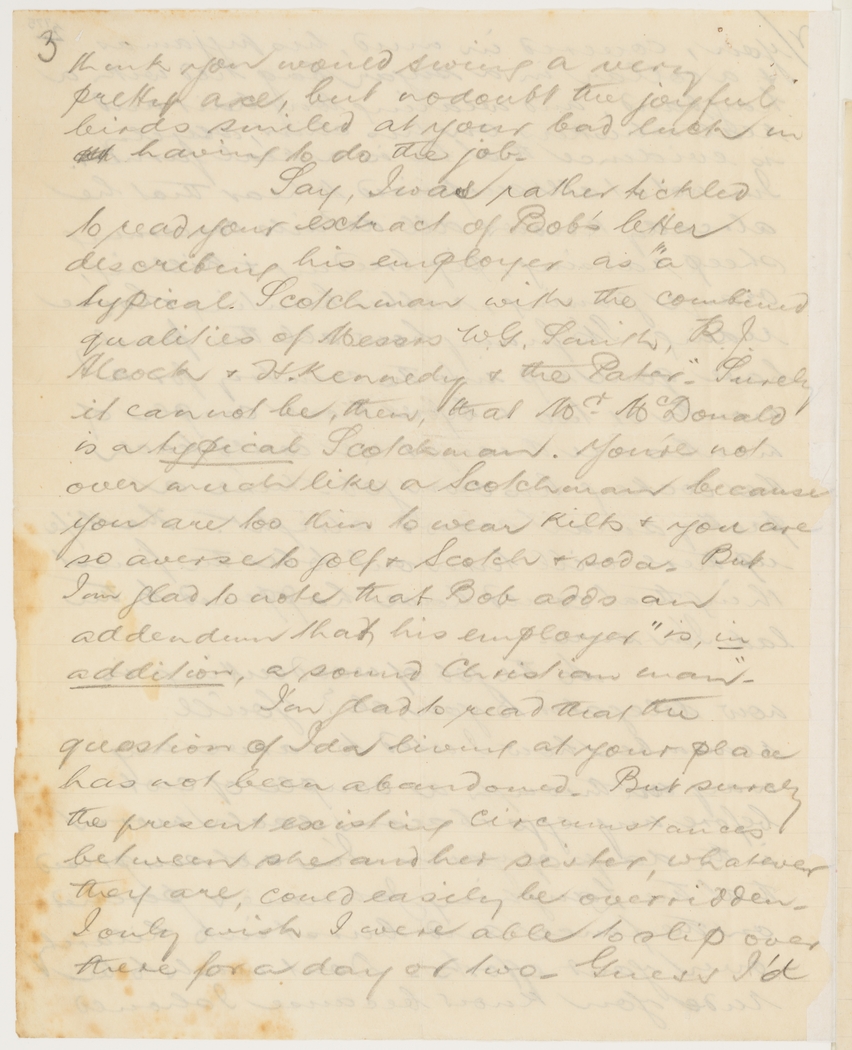 3
think you would swing a very
pretty axe, but no doubt the joyful
birds smiled at your bad luck in
having to do the job.
Say, I was rather tickled
to read your extract of Bob's letter
describing his employer as "a
typical Scotchman with the combined
qualities of Messrs W.G. Smith, R.J.
Alcock & H. Kennedy & the Pater". Surely
it cannot be, then, that Mr. McDonald
is a typical Scotchman. You're not
over much like a Scotchman because
you are too thin to wear kilts & you are
so averse to golf & Scotch & soda. But
I'm glad to note that Bob adds an
addendum that his employer "is, in
addition, a sound Christian man".
I'm glad to read that the
question of Ida living at your place
has not been abandoned. But surely
the present existing circumstances
between she and her sister, whatever
they are, could easily be overridden.
I only wish I were able to slip over
there for a day or two. Guess I'd